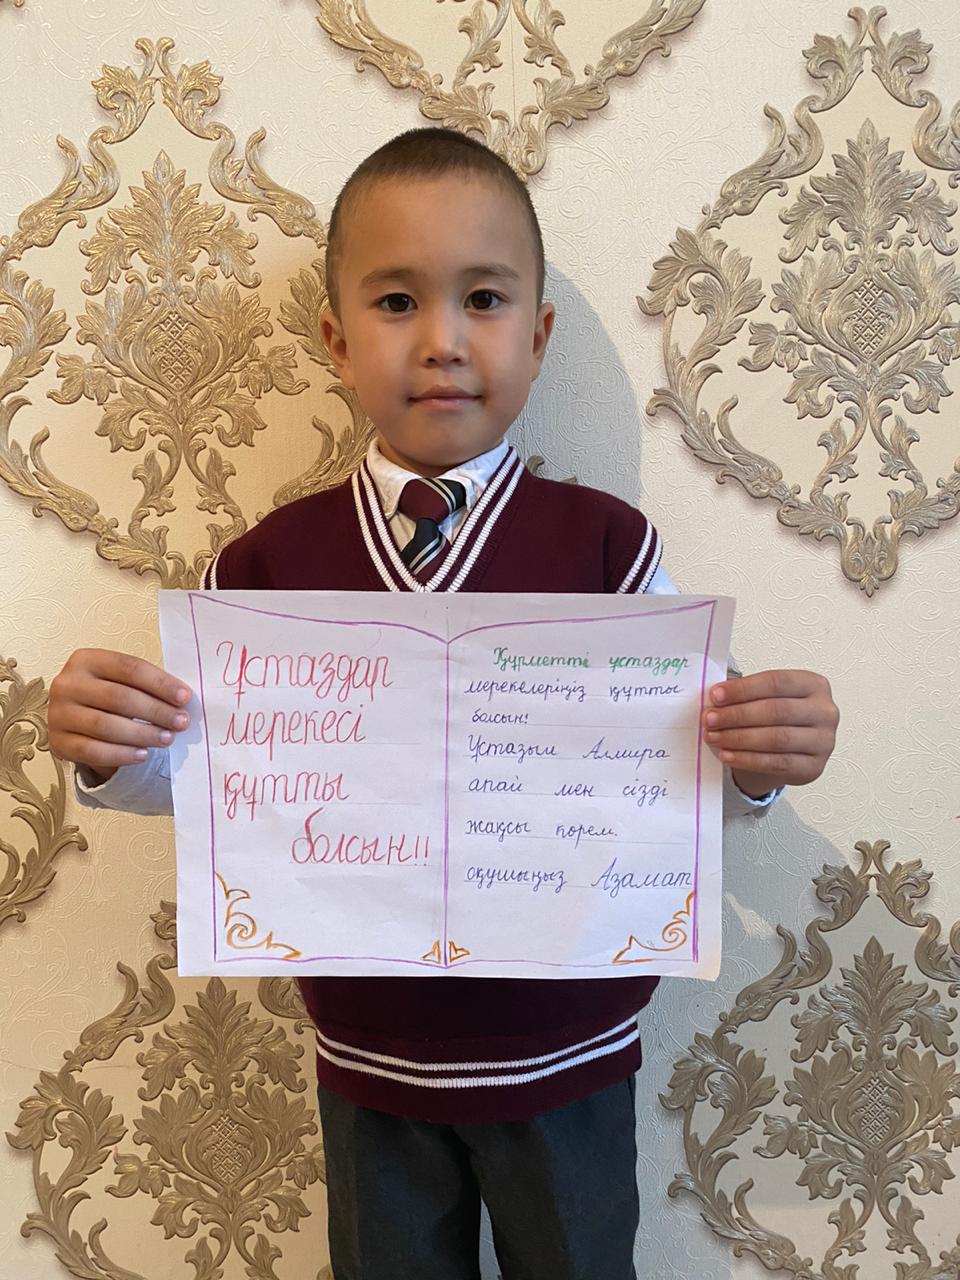 Ұстаздар
мерекесі
құтты
болсын!!
Құрметті ұстаздар
мерекелеріңіз құтты
болсын!
Ұстазым Алмира
апай мен сізді
жақсы көрем.
оқушыңыз Азамат